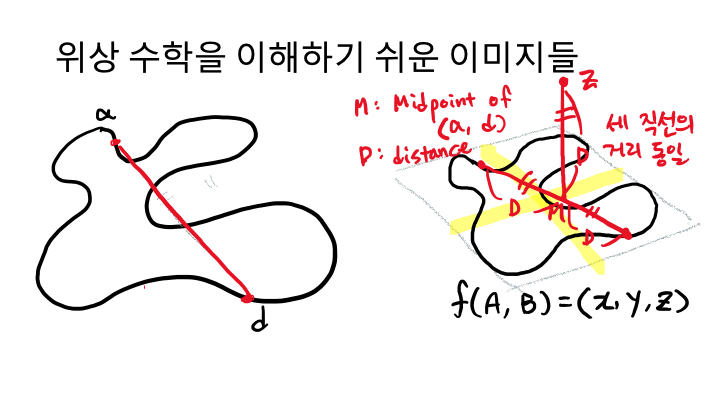 위상 수학을 이해하기 쉬운 이미지들
a
d
M: Midpoint of
(a, d)
D: distance
Z
세 직선의
거리 동일
D
D
M
D
f(A, B) = (x, Y, Z)